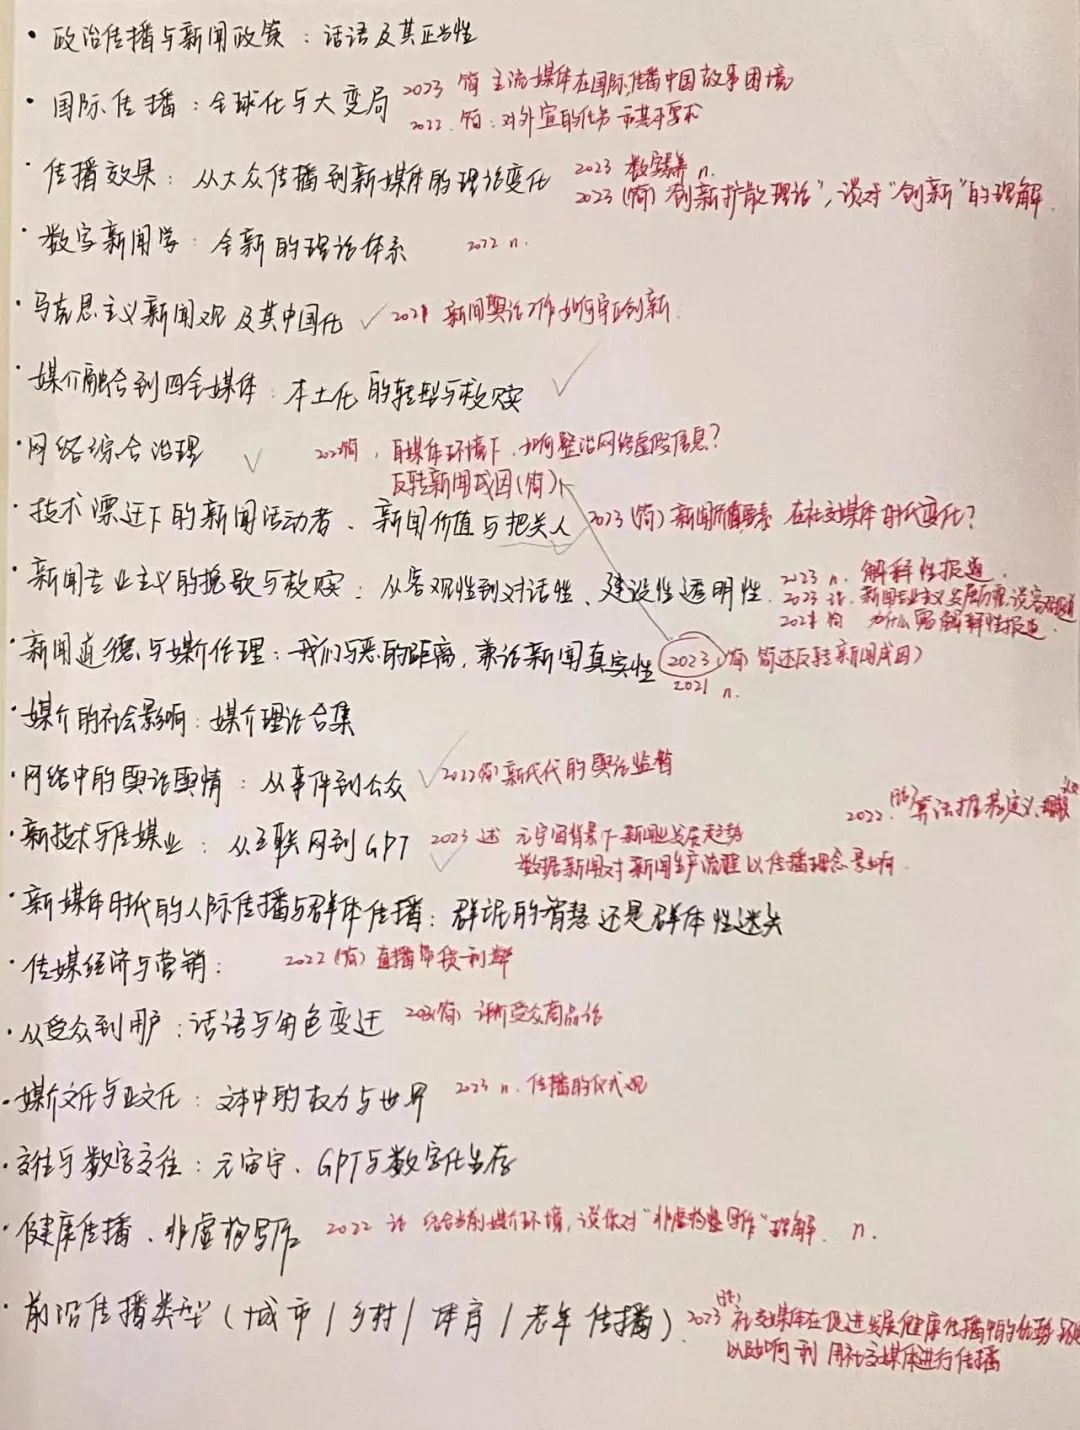 · 政治传播与新闻政策：话语及其正当性
· 国际传播：全球化与大变局 2023 简 主流媒体在国际传播中国故事困境
2022. 简：对外宣的任务 基本要求
· 传播效果：从大众传播到新媒体的理论变化 2023 数字素养 n.
2023（简）"创新扩散理论"，谈对"创新"的理解
· 数字新闻学：全新的理论体系 2022 n.
· 马克思主义新闻观及其中国化 ✓ 2021 新闻舆论工作如何守正创新
· 媒介融合到四全媒体：本土化的转型与救赎 ✓
· 网络综合治理 ✓ 2022简，自媒体环境下，如何整治网络虚假信息？
反转新闻成因（简）
· 技术漂迁下的新闻活动者、新闻价值与把关人 2023（简）新闻价值要素 在社交媒体时代变化？
· 新闻专业主义的挽歌与救赎：从客观性到对话性、建设性透明性 2023 n. 解释性报道
2023 论. 新闻专业主义发展历程，谈客观报道
2021 简 为什么需解释性报道
· 新闻道德与媒介伦理：我们与恶的距离，兼论新闻真实性 2023（简 简述反转新闻成因）
2021 n.
· 媒介的社会影响：媒介理论合集
· 网络中的舆论舆情：从事件到公众 ✓ 2022简 新时代的舆论监督
2022. 算法推荐定义、
· 新技术与传媒业：从互联网到GPT ✓ 2023 述 元宇宙背景下新闻业发展趋势
数据新闻对新闻生产流程以传播理念影响
· 新媒体时代的人际传播与群体传播：群氓的智慧还是群体性迷失
· 传媒经济与营销： 2022（简）直播带货利弊
· 从受众到用户：话语与角色变迁 （简）评析受众商品论
· 媒介文化与亚文化：文本中的权力与世界 2023 n. 传播的仪式观
· 交往与数字交往：元宇宙、GPT与数字化生存
· 健康传播、非虚构写作 2022 论 结合当前媒介环境，谈你对"非虚构写作"理解. n.
· 前沿传播类型（城市/乡村/体育/老年传播） 2023 社交媒体在促进发展健康传播中的优势
以及如何利用社交媒体进行传播